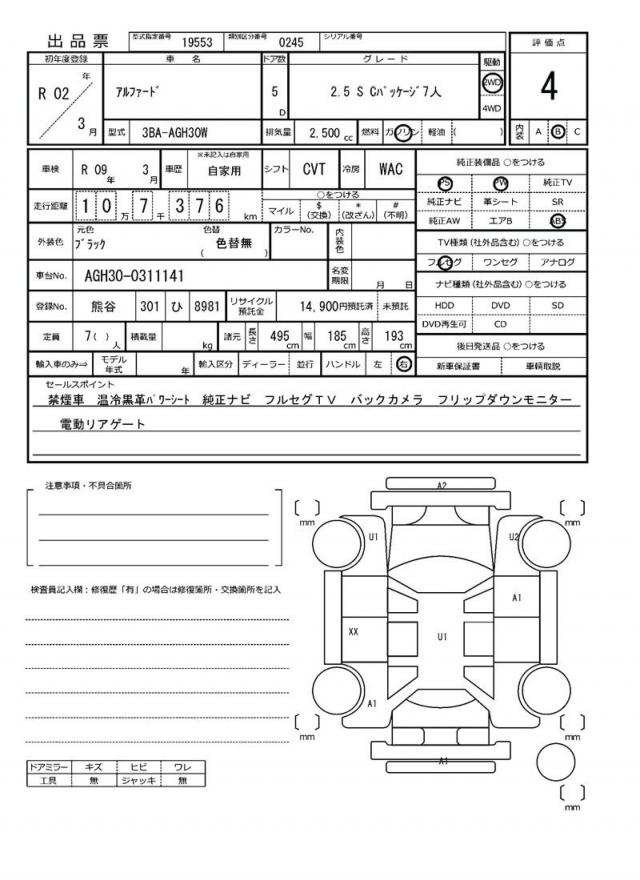 出品票 型式指定番号 19553 類別区分番号 0245 シリアル番号
評価点
初年度登録 車名 ドア数 グレード 駆動
R 02 年 3 月 アルファード 5 D 2.5 S Cパッケージ7人 2WD 4WD
4
型式 3BA-AGH30W 排気量 2,500 cc 燃料 ガソリン 軽油 ( ) 内装 A B C
車検 R 09 年 3 月 車歴 ※未記入は自家用 自家用 シフト CVT 冷房 WAC
純正装備品 ○をつける
PS PW 純正TV
純正ナビ 革シート SR
純正AW エアB ABS
走行距離 10 万 7 千 376 km ○をつける
マイル $ (交換) * (改ざん) # (不明)
外装色 元色 ブラック 色替 ( 色替無 ) カラーNo. 内装色
TV種類 (社外品含む) ○をつける
フルセグ ワンセグ アナログ
車台No. AGH30-0311141 名変期限 月 日
ナビ種類 (社外品含む) ○をつける
HDD DVD SD
DVD再生可 CD
登録No. 熊谷 301 ひ 8981 リサイクル預託金 14,900円預託済 未預託
定員 7( ) 人 積載量 kg 諸元 長さ 495 cm 幅 185 cm 高さ 193 cm
後日発送品 ○をつける
新車保証書 車輌取説
輸入車のみ⇒ モデル年式 年 輸入区分 ディーラー 並行 ハンドル 左 右
セールスポイント
禁煙車 温冷黒革パワーシート 純正ナビ フルセグTV バックカメラ フリップダウンモニター
電動リアゲート
注意事項・不具合箇所
検査員記入欄:修復歴「有」の場合は修復箇所・交換箇所を記入
A2
mm mm
U1 U2
A1
XX U1
A1
mm mm
A1
mm
ドアミラー キズ ヒビ ワレ
工具 無 ジャッキ 無